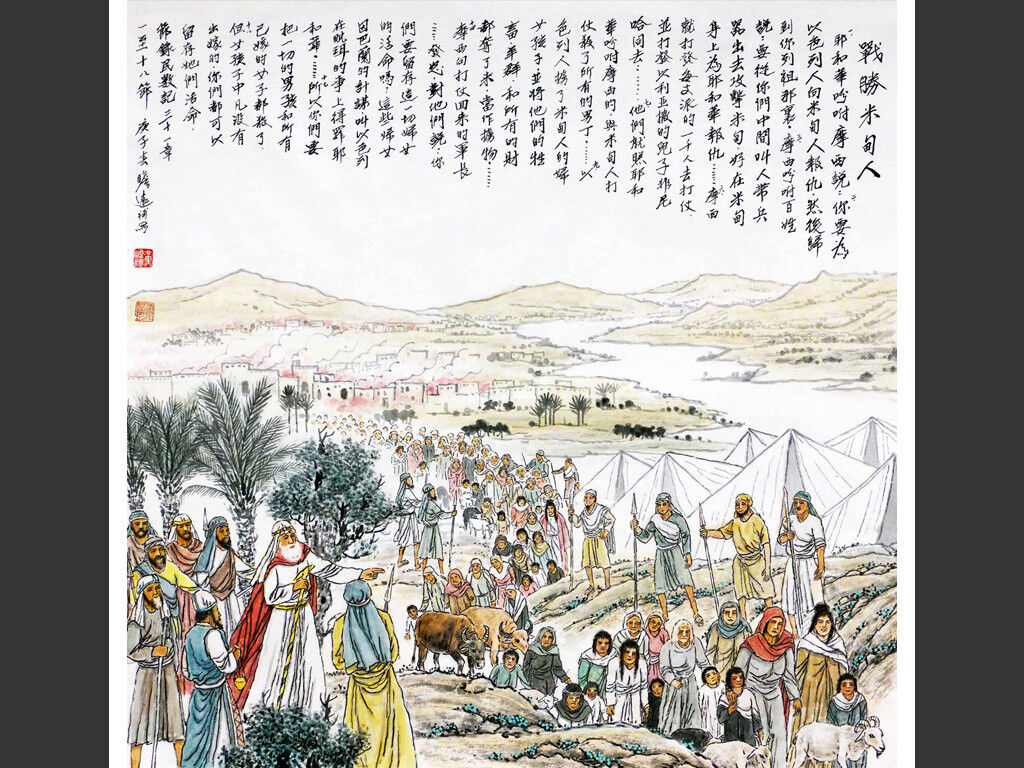 戰勝米甸人
耶和華吩咐摩西說：二你要為
以色列人向米甸人報仇，然後歸
到你列祖那裏。三摩西吩咐百姓
說：要從你們中間叫人帶兵
器出去攻擊米甸，好在米甸
身上為耶和華報仇……六摩西
就打發每支派的一千人去打仗，
並打發以利亞撒的兒子非尼
哈同去……七他們就照耶和
華吩咐摩西的，與米甸人打
仗，殺了所有的男丁。……九以
色列人擄了米甸人的婦
女孩子，並將他們的牲
畜、羊群，和所有的財
都奪了來，當作擄物。……
摩西向打仗回來的軍長
……發怒，對他們說：你
們要留存這一切婦女
的活命嗎？這些婦女
因巴蘭的計謀，叫以色列
在毗珥的事上得罪耶
和華……十七所以你們要
把一切的男孩和所有
已嫁的女子都殺了。
十八但女孩子中凡沒有
出嫁的，你們都可以
留存她們活命。
節錄民數記三十一章
一至十八節 庚子